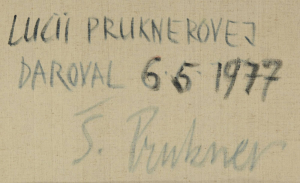 LUCII PRUKNEROVEJ
DAROVAL 6 5 1977
Š. Prukner